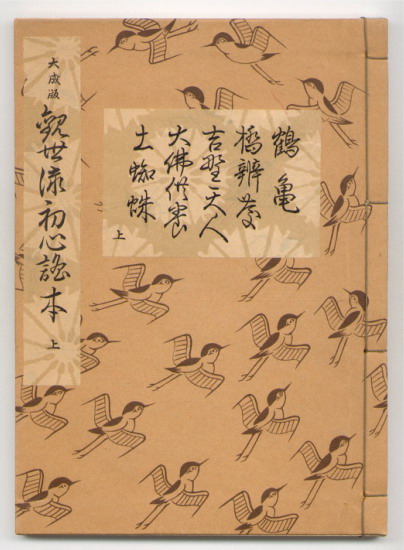 鶴亀
橋辨慶
吉野天人
大佛供養
土蜘蛛
上
大成版 觀世流初心謠本 上